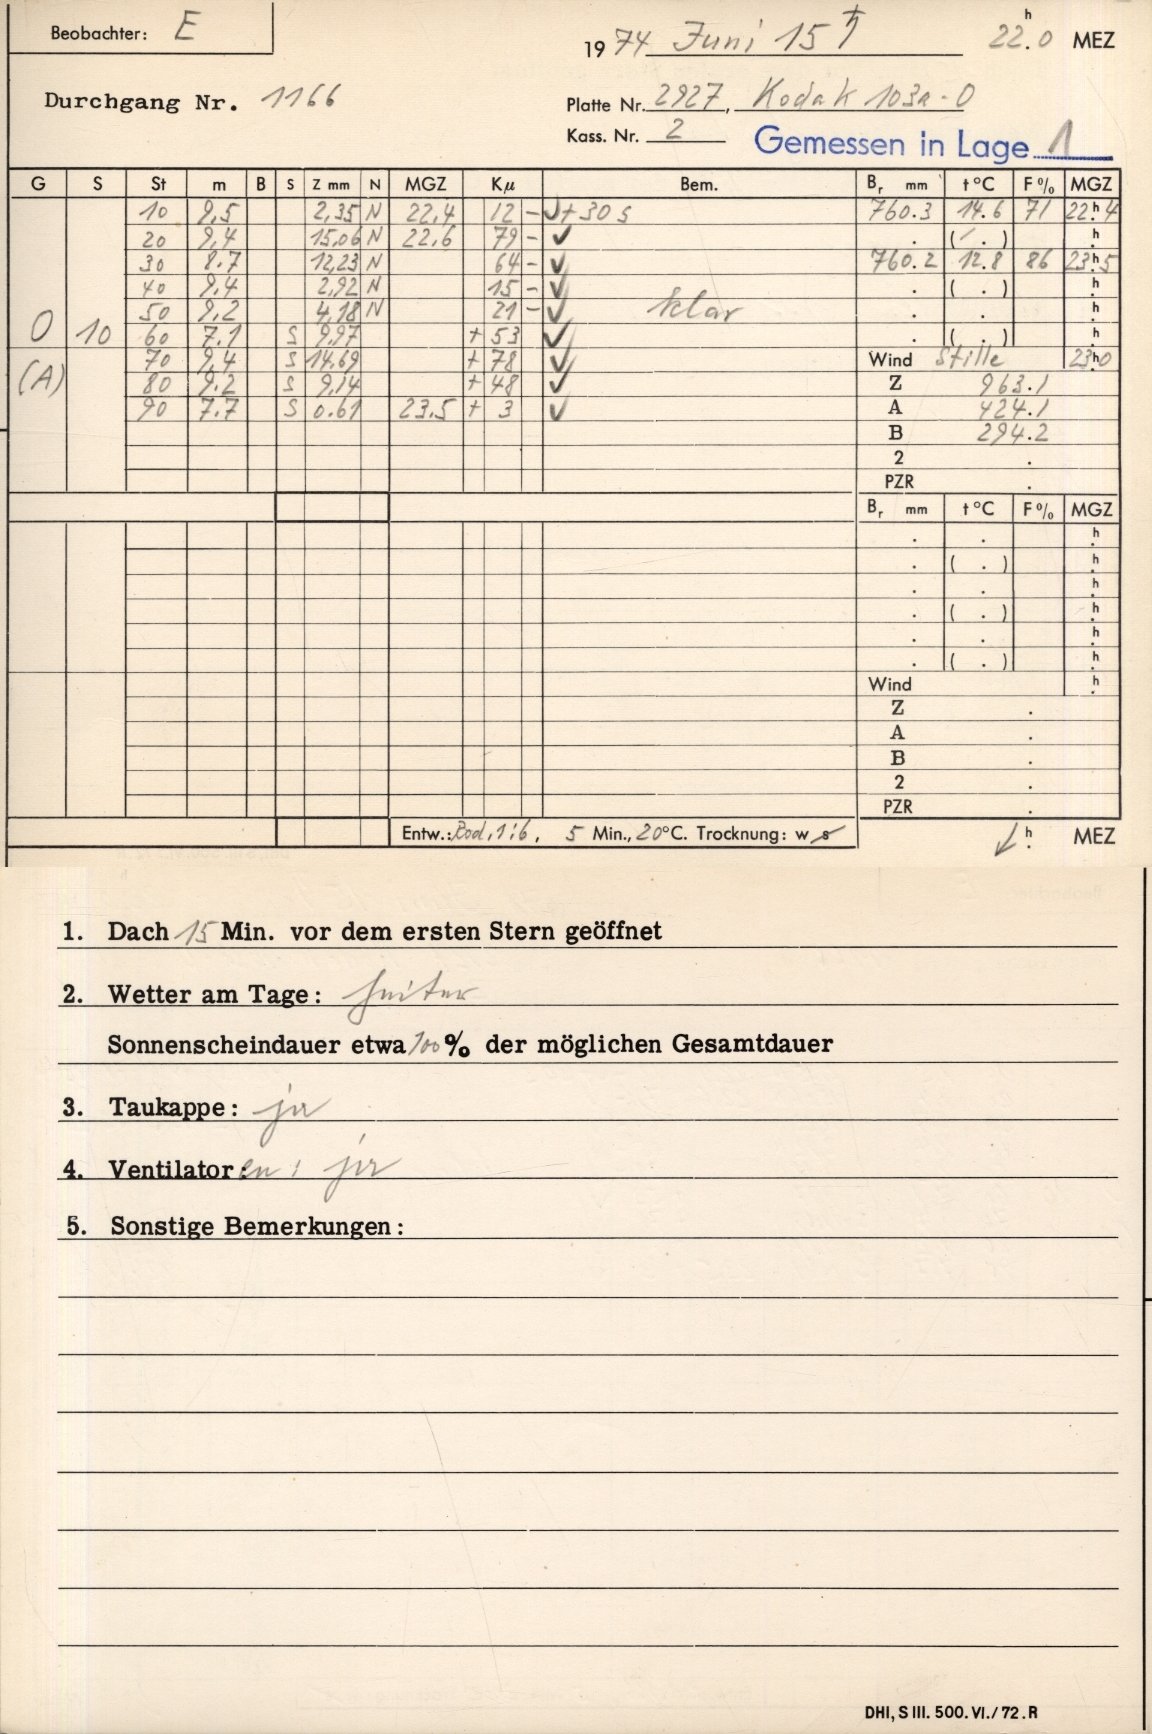 Beobachter: E
1974 Juni 15 ♄ 22.h0 MEZ
Durchgang Nr. 1166
Platte Nr. 2927, Kodak 103a-O
Kass. Nr. 2
Gemessen in Lage 1
G S St m B S Z mm N MGZ Kμ Bem. Br mm t °C F % MGZ
10 9,5 2,35 N 22,4 12 - ✓ + 30 s 760.3 14.6 71 22.h4
20 9,4 15,06 N 22,6 79 - ✓ . ( . ) .h
30 8.7 12,23 N 64 - ✓ 760.2 12.8 86 23.h5
40 9,4 2,92 N 15 - ✓ . ( . ) .h
50 9,2 4,18 N 21 - ✓ klar . . .h
O 10 60 7.1 S 9,97 + 53 ✓ . ( . ) .h
(A) 70 9,4 S 14,69 + 78 ✓ Wind Stille 23.h0
80 9.2 S 9,14 + 48 ✓ Z 963.1
90 7.7 S 0.61 23.5 + 3 ✓ A 424.1
B 294.2
2 .
PZR .
Br mm t °C F % MGZ
. . .h
. ( . ) .h
. . .h
. ( . ) .h
. . .h
. ( . ) .h
Wind .h
Z .
A .
B .
2 .
PZR .
Entw.: Rod. 1:6, 5 Min., 20°C. Trocknung: w s
.h MEZ
1. Dach 15 Min. vor dem ersten Stern geöffnet
2. Wetter am Tage: heiter
Sonnenscheindauer etwa 100 % der möglichen Gesamtdauer
3. Taukappe: ja
4. Ventilatoren: ja
5. Sonstige Bemerkungen:
DHI, S III. 500. VI./72. R